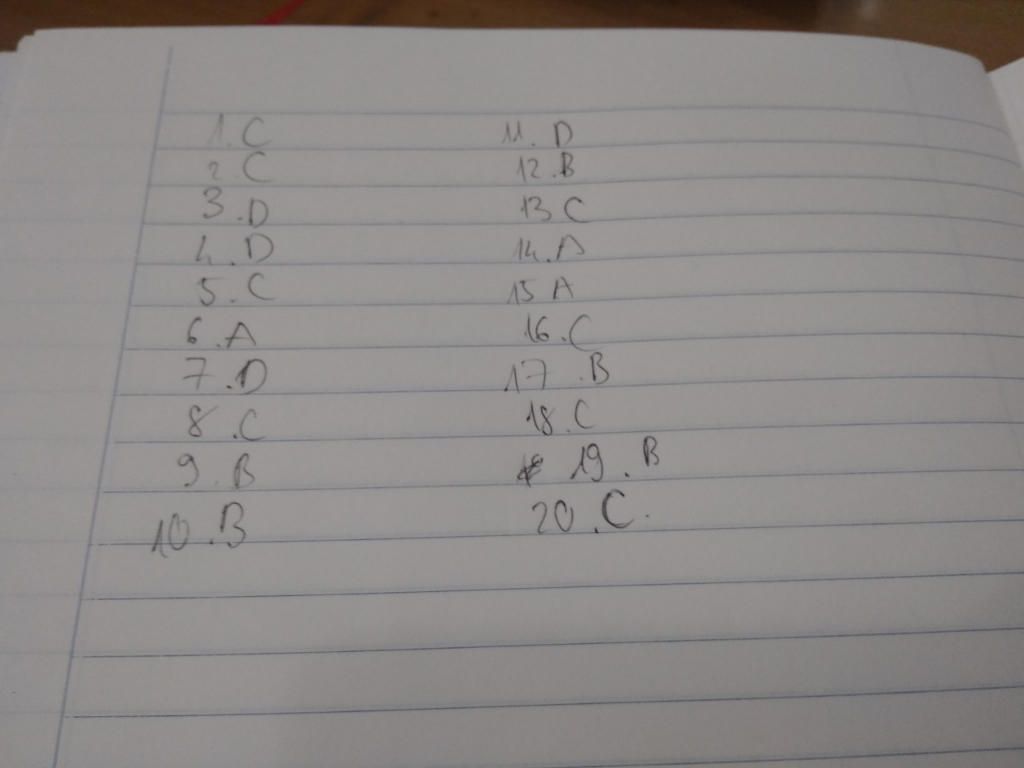 1.C
2.C
3.D
4.D
5.C
6.A
7.D
8.C
9.B
10.B
11.D
12.B
13 C
14.A
15 A
16.C
17.B
18.C
19.B
20.C.